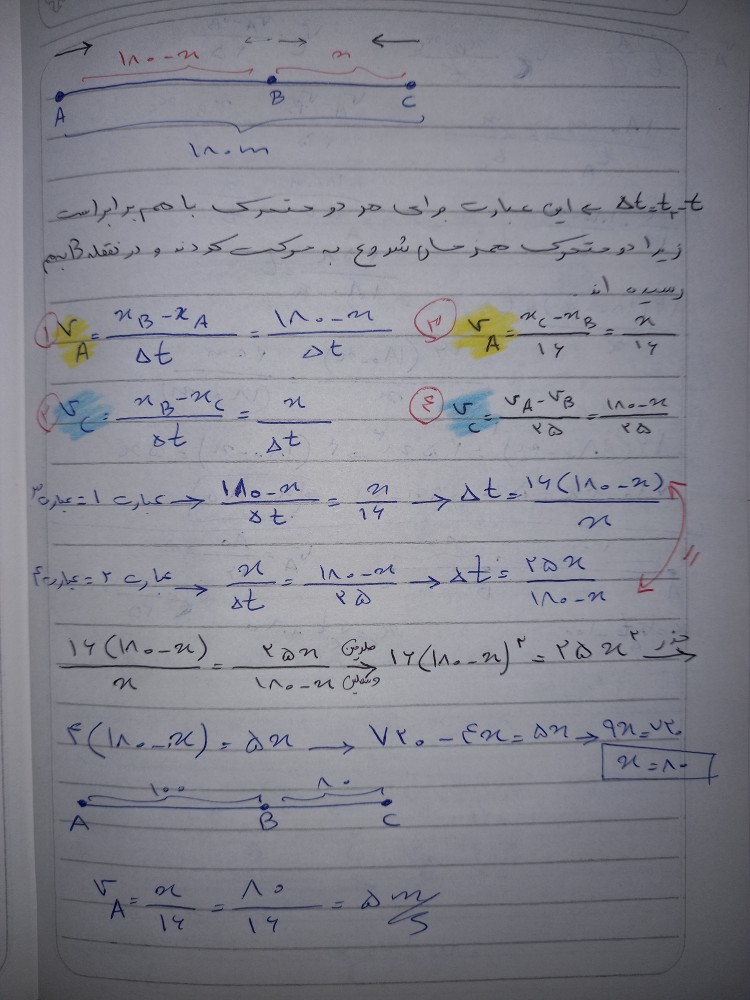 ۱۸۰-x x
A B C
۱۸۰m
Δt=t₂-t₁ ← این عبارت برای هر دو متحرک با هم برابر است
زیرا دو متحرک همزمان شروع به حرکت کردند و در نقطه B بهم
رسیده اند.
① V_A = (x_B - x_A)/Δt = (۱۸۰-x)/Δt ③ V_A = (x_C - x_B)/۱۶ = x/۱۶
② V_C = (x_B - x_C)/Δt = x/Δt ④ V_C = (V_A - V_B)/۲۵ = (۱۸۰-x)/۲۵
عبارت ۱ = عبارت ۳ → (۱۸۰-x)/Δt = x/۱۶ → Δt = ۱۶(۱۸۰-x)/x
عبارت ۲ = عبارت ۴ → x/Δt = (۱۸۰-x)/۲۵ → Δt = ۲۵x/(۱۸۰-x)
=
۱۶(۱۸۰-x)/x = ۲۵x/(۱۸۰-x) طرفین وسطین → ۱۶(۱۸۰-x)^۲ = ۲۵x^۲ جذر →
۴(۱۸۰-x) = ۵x → ۷۲۰-۴x = ۵x → ۹x=۷۲۰
x = ۸۰
۱۰۰ ۸۰
A B C
V_A = x/۱۶ = ۸۰/۱۶ = ۵ m/s